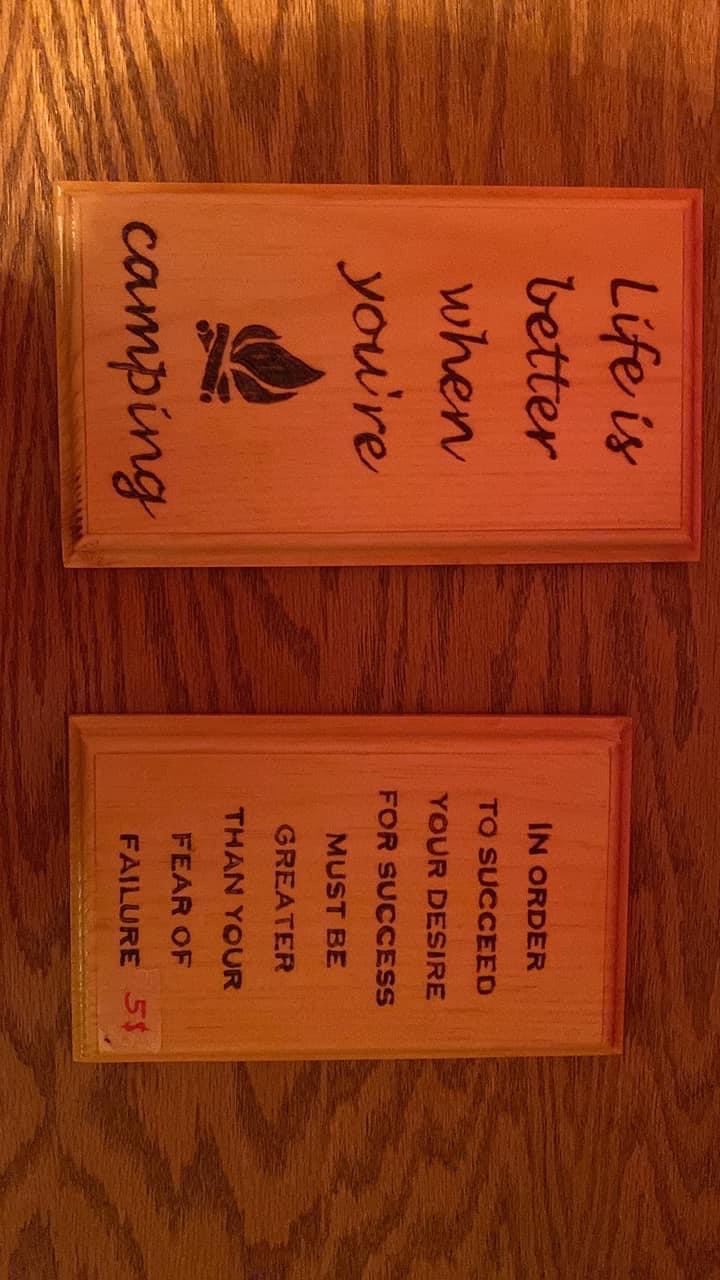 Life is
better
when
you're
camping
IN ORDER
TO SUCCEED
YOUR DESIRE
FOR SUCCESS
MUST BE
GREATER
THAN YOUR
FEAR OF
FAILURE
5$